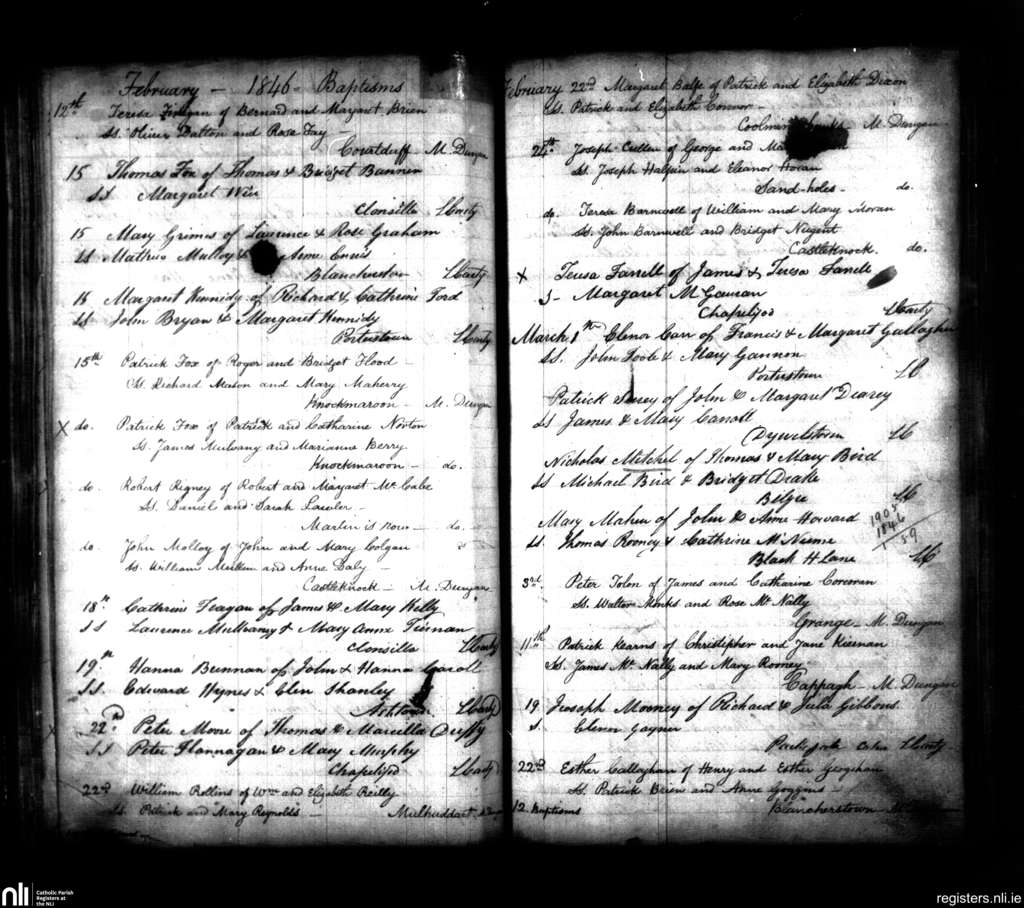 February - 1846 - Baptisms
12th Teresa of Bernard and Margaret Brien
Ss. Oliver Dutton and Rose Fay -
Courtduff M. Dungan
15 Thomas Fox of Thomas & Bridget Bannon
SS Margaret Weir
Clonsilla
15 Mary Grimes of Laurence & Rose Graham
SS Mathew Mulloy & Anne Ennis
Blanchestown
18 Margaret Kennidy of Richard & Cathrine Ford
SS John Bryan & Margaret Kennidy
Porterstown
15th Patrick Fox of Roger and Bridget Flood -
Ss. Richard Mason and Mary Maherry
Knockmaroon - M. Dungan
X do. Patrick Fox of Patrick and Catharine Norton
Ss. James Mulvany and Marianne Berry
Knockmaroon - do.
do. Robert Rigney of Robert and Margaret Mc Cabe
Ss. Daniel and Sarah Lawler -
Martin is now - do.
do. John Molloy of John and Mary Colgan
Ss. William and Anne Daly -
Castleknock - M. Dungan
18th Cathrine Feagan of James & Mary Kelly
SS Laurence Mulvaney & Mary Anne Tiernan
Clonsilla
19th Hanna Brennan of John & Hanna Caroll
SS. Edward Hynes & Elen Shanley
Ashtown
22nd Peter Moore of Thomas & Marcella Duffy
SS Peter Flannagan & Mary Murphy
Chapelizod
22nd William Rollins of Wm and Elizabeth Reilly
Ss. Patrick and Mary Reynolds - Mulhuddart
February 22nd Margaret Balfe of Patrick and Elizabeth Dixon
Ss. Patrick and Elizabeth Connor -
M. Dungan
24th Joseph Cullen of George and
Ss. Joseph Halpin and Eleanor Horan
Sand-holes - do.
do. Teresa Barnwell of William and Mary Moran
Ss. John Barnwell and Bridget Nugent
Castleknock. do.
X Teresa Farrell of James & Teresa Farrell
S - Margaret McGowran
Chapelizod
March 1th Elenor Carr of Francis & Margaret Gallagher
SS. John Toole & Mary Gannon
Porterstown LC
Patrick of John & Margaret Dearey
SS James & Mary Carroll
LC
Nicholas Mitchel of Thomas & Mary Bird
SS Michael Bird & Bridget Drake
LC
Mary Maher of John & Anne Howard
1905
1846
59
SS. Thomas Rooney & Cathrine
Black H Lane LC
3rd Peter Tolon of James and Catharine Corcoran
Ss. Walter Monks and Rose Mc Nally
Grange - M. Dungan
11th Patrick Kearns of Christopher and Jane Kiernan
Ss. James Mc Nally and Mary Rooney -
Cappagh - M. Dungan
19 Joseph Mooney of Richard & Julia Gibbons
S. Elenor Gaynor
22nd Esther Callaghan of Henry and Esther Geoghan
Ss. Patrick Brien and Anne Goggins -
12 Baptisms Blancherstown -
nli
Catholic Parish
Registers at
the NLI
registers.nli.ie